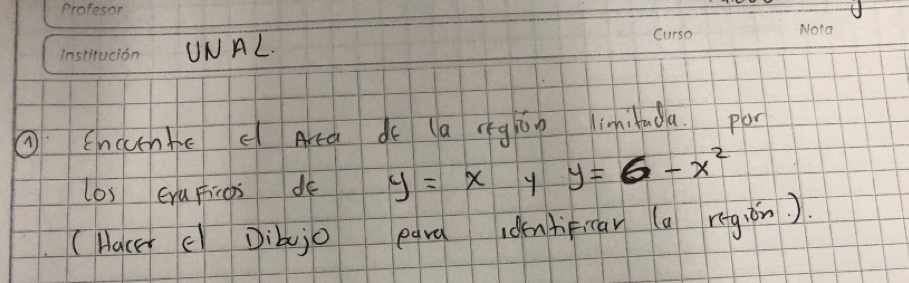 Profesor
Institución UNAL. Curso Nota
① Encuentre el Area de la región limitada. por
los Graficos de y = x y y = 6 - x²
(Hacer el Dibujo para identificar la región.).